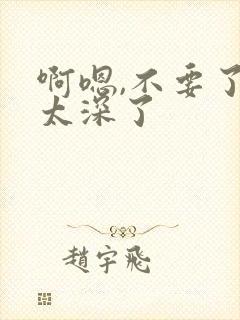 啊嗯,不要了
太深了
趙宇飛